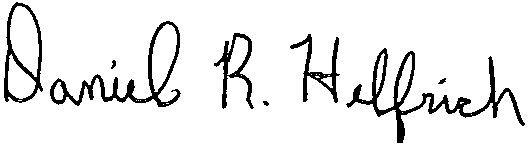 Daniel R. Helfrich